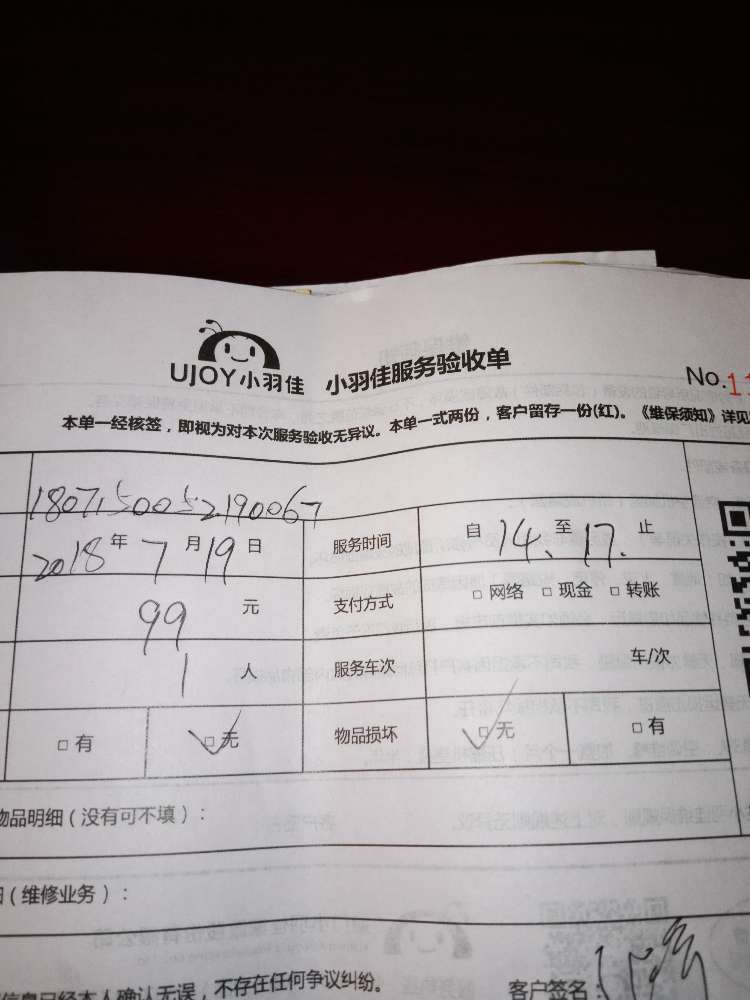 UJOY小羽佳 小羽佳服务验收单
No.11
本单一经核签，即视为对本次服务验收无异议。本单一式两份，客户留存一份(红)。《维保须知》详见
1807150052190067
2018年7月19日 服务时间 自14.至17.止
99元 支付方式 □网络 □现金 □转账
1人 服务车次 车/次
□有 □无 物品损坏 □无 □有
物品明细（没有可不填）：
（维修业务）：
信息已经本人确认无误，不存在任何争议纠纷。
客户签名：